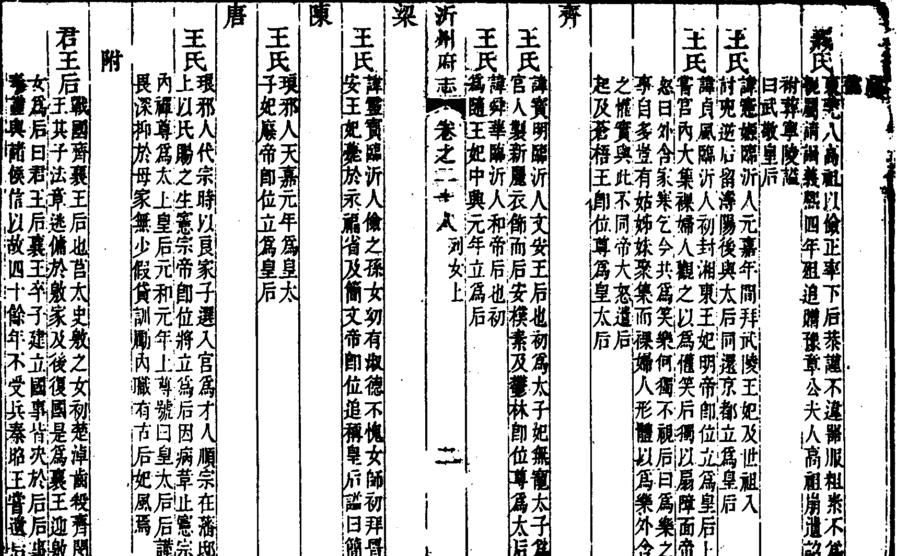 臧氏
東莞人高祖以儉正率下后恭謹不違器服粗素不爲
親屬請謁義熙四年殂追贈豫章公夫人高祖崩遺詔
祔葬寧陵諡
曰武敬皇后
王氏
諱憲嫄臨沂人元嘉年間拜武陵王妃及世祖入
討兇逆后留潯陽後與太后同還京都立爲皇后
王氏
諱貞風臨沂人初封湘東王妃明帝卽位立爲皇后
嘗宮內大集裸婦人觀之以爲懽笑后獨以扇障面帝
怒曰外舍家寒乞今共爲笑樂何獨不視后曰爲樂之
事自多豈有姑姊妹聚集而裸婦人形體以爲樂外舍
之懽實與此不同帝大怒遣后
起及蒼梧王卽位尊爲皇太后
齊
王氏
諱寶明臨沂人文安王后也初爲太子妃無寵太子爲
宮人製新麗衣飾而后安樸素及鬱林卽位尊爲太后
王氏
諱舜華臨沂人和帝后也初
爲隨王妃中興元年立爲后
沂州府志 卷之二十八 列女上 二
梁
王氏
諱靈賓臨沂人儉之孫女幼有淑德不愧女師初拜晉
安王妃薨於永福省及簡文帝卽位追稱皇后諡曰簡
陳
王氏
瑯邪人天嘉元年爲皇太
子妃廢帝卽位立爲皇后
唐
王氏
瑯邪人代宗時以良家子選入宮爲才人順宗在藩邸
上以氏賜之生憲宗帝卽位將立爲后因病輩止憲宗
內禪尊爲太上皇后元和元年上尊號曰皇太后后謹
畏深抑於母家無少假貸訓勵內職有古后妃風焉
附
君王后
戰國齊襄王后也莒太史敫之女初楚淖齒殺齊閔
王其子法章逃傭於敫家及後復國是爲襄王迎敫
女爲后曰君王后襄王卒子建立國事皆決於后后事
秦謹與諸侯信以故四十餘年不受兵秦昭王嘗遺后